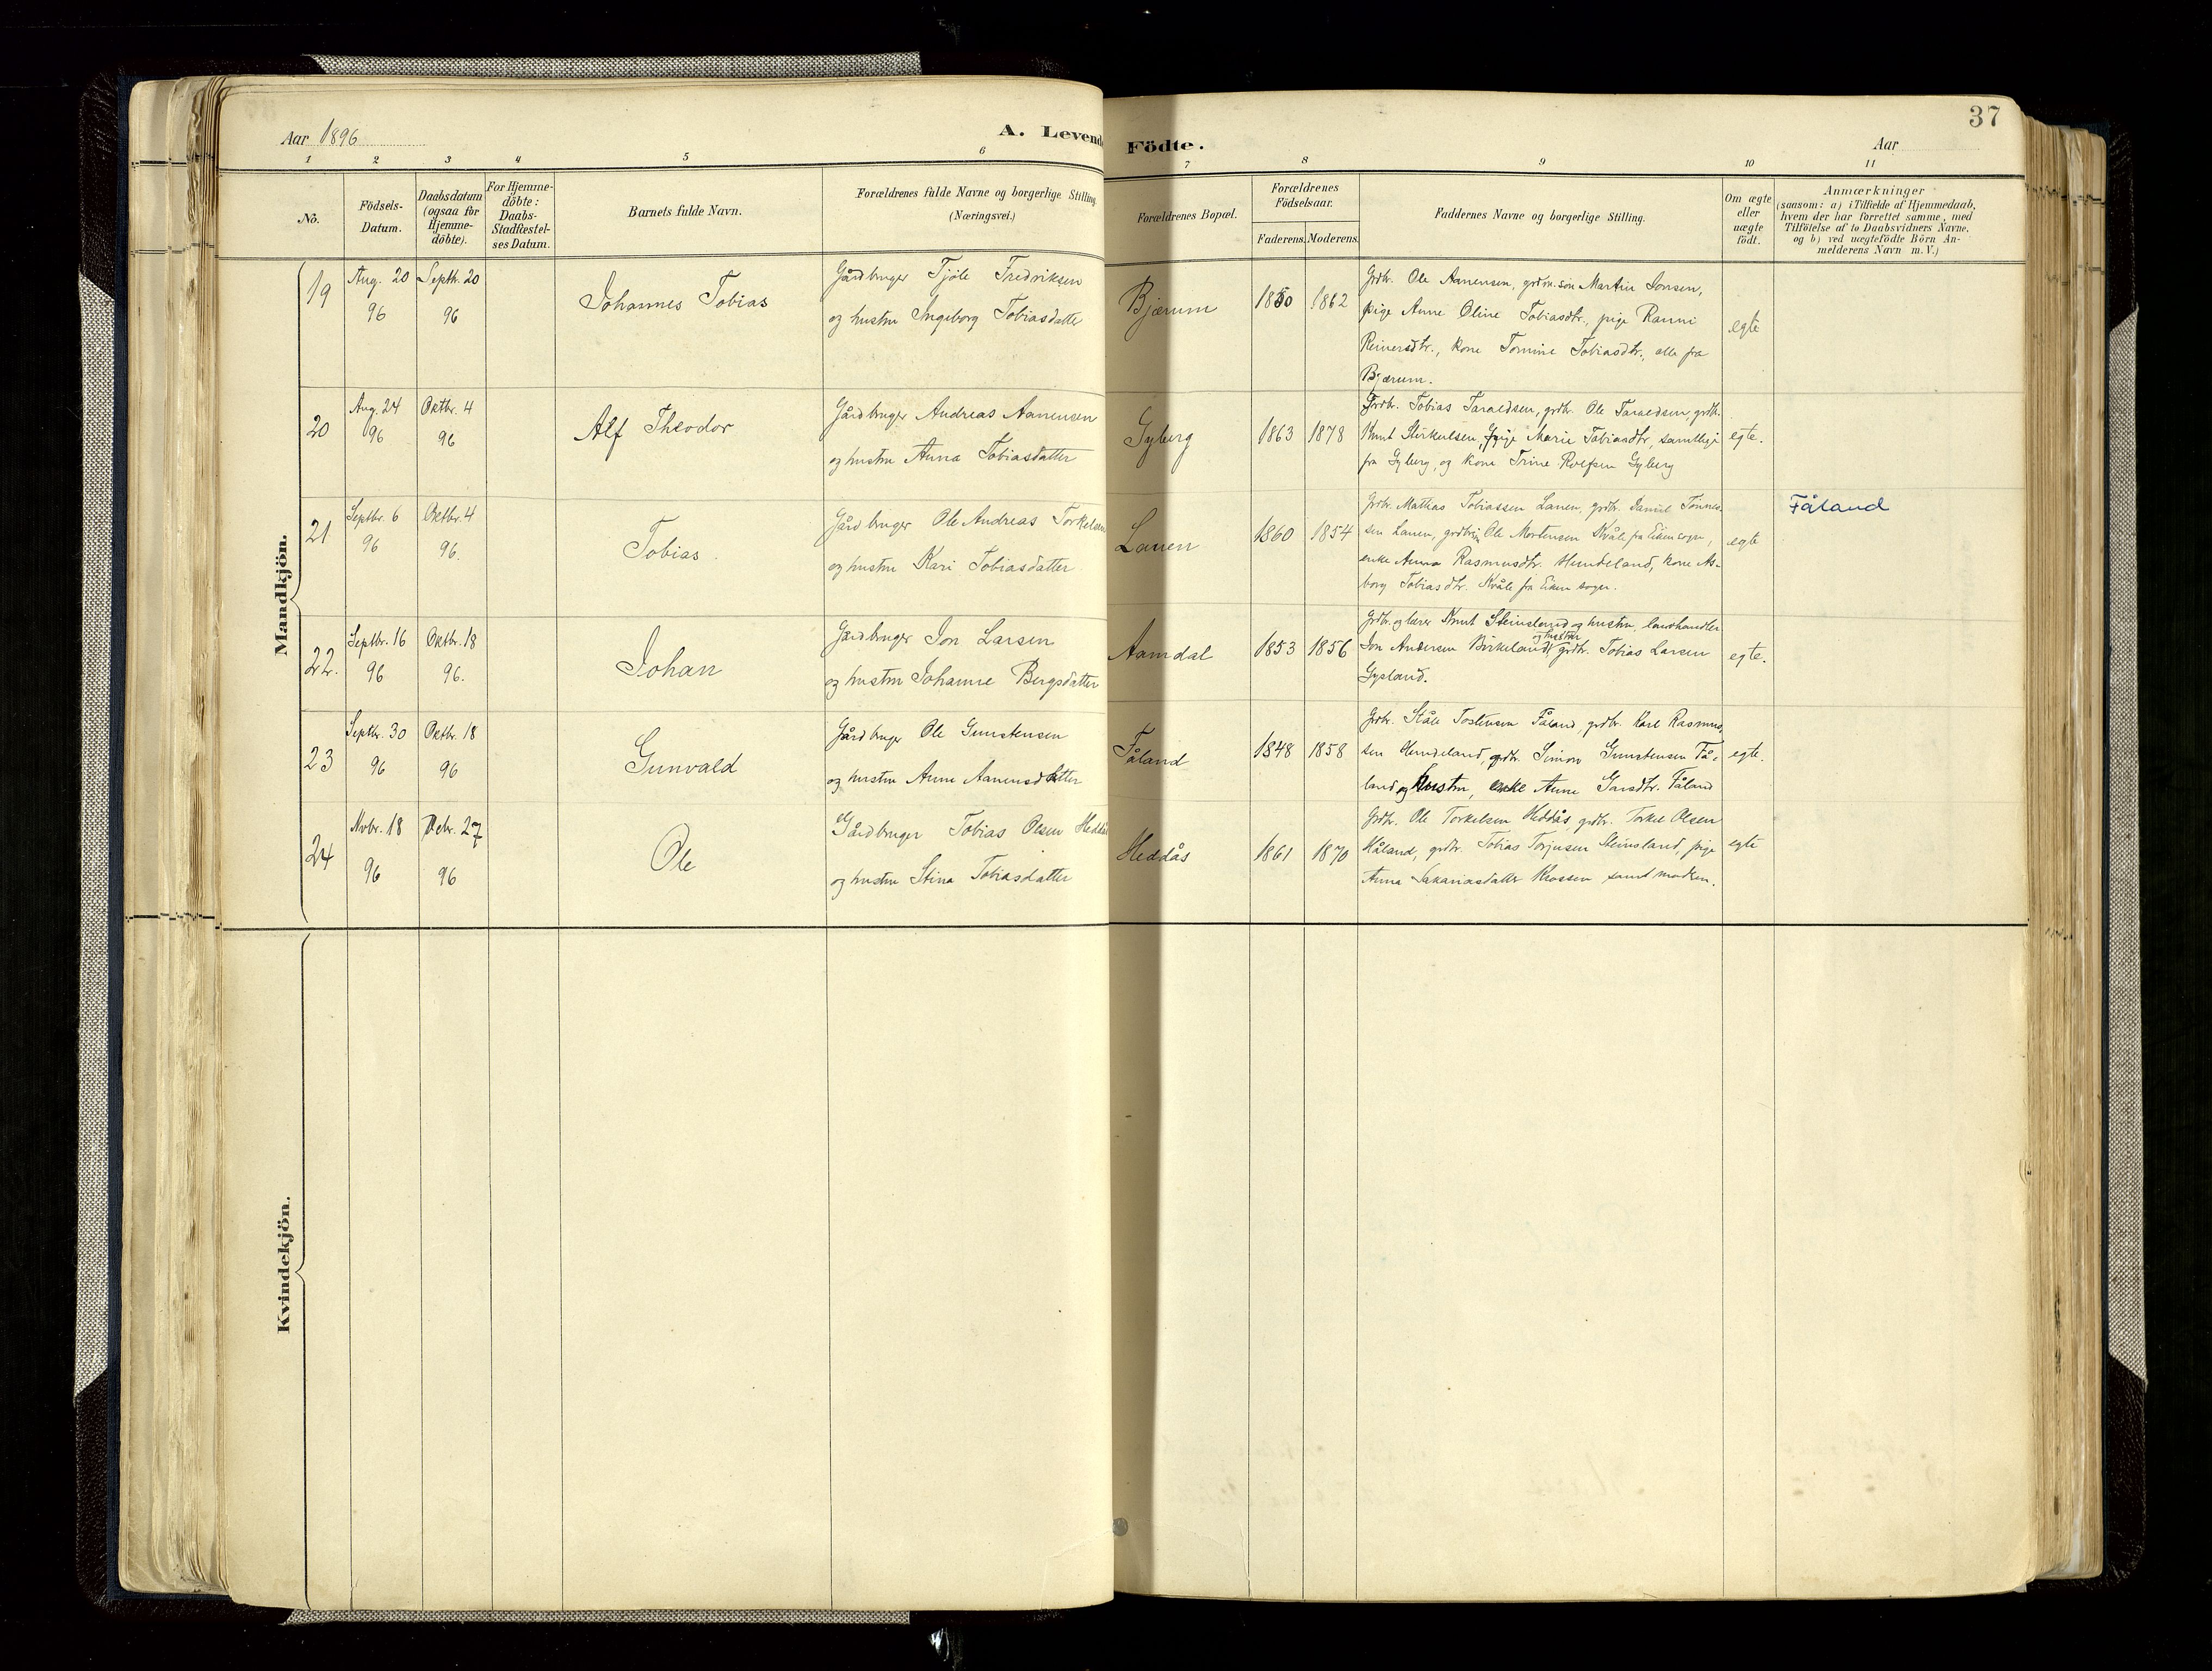 37
Aar 1896
A. Levende
Födte.
Aar
1 2 3 4 5 6 7 8 9 10 11
No.
Födsels-
Datum.
Daabsdatum
(ogsaa for
Hjemme-
döbte).
For Hjemme-
döbte:
Daabs-
Stadfæstel-
ses Datum.
Barnets fulde Navn.
Forældrenes fulde Navne og borgerlige Stilling
(Næringsvei.)
Forældrenes Bopæl.
Forældrenes
Födselsaar.
Faderens. Moderens.
Faddernes Navne og borgerlige Stilling.
Om ægte
eller
uægte
födt.
Anmærkninger
(saasom: a) i Tilfælde af Hjemmedaab,
hvem der har forrettet samme, med
Tilföielse af to Daabsvidners Navne.
og b) ved uægtefödte Börn An-
melderens Navn m. V.)
Mandkjön.
19
Aug. 20
96
Septbr. 20
96
Johannes Tobias
Gårdbruger Tjöle Fredriksen
og hustru Ingeborg Tobiasdatter
Bjærum
1850 1862
Grdbr. Ole Aanensen, grdm. sön Martin Jonsen,
pige Anne Oline Tobiasdtr., pige Ranni
Reinersdtr., kone Tomine Tobiasdtr., alle fra
Bjærum.
egte
20
Aug. 24
96
Oktbr. 4
96
Alf Theodor
Gårdbruger Andreas Aanensen
og hustru Anna Tobiasdatter
Gyberg
1863 1878
Grdbr. Tobias Taraldsen, grdbr. Ole Taraldsen, grdbr.
Knut Sirkulsen, pige Marie Tobiasdtr., samtlige
fra Gyberg, og kone Trine Rolfsen Gyberg
egte.
21
Septbr. 6
96
Oktbr. 4
96.
Tobias.
Gårdbruger Ole Andreas Torkelsen
og hustru Kari Tobiasdatter
Lauen
1860 1854
Grdbr. Mathias Tobiassen Lauen, grdbr. Daniel Tönnes-
sen Lauen, grdbr. Ole Mortensen Kvåle fra Eiken sogn,
enke Anna Rasmusdtr. Hundeland, kone As-
borg Tobiasdtr. Kvåle fra Eiken sogn.
egte
Fåland
22.
Septbr. 16
96
Oktbr. 18
96.
Johan
Gårdbruger Jon Larsen
og hustru Johanne Bergsdatter
Aamdal
1853 1856
Grdbr. og lærer Knut Steinsland og hustru, landhandler
Jon Andersen Birkeland og hustru, grdbr. Tobias Larsen
Gysland.
egte.
23
Septbr. 30
96
Oktbr. 18
96
Gunvald
Gårdbruger Ole Gunstensen
og hustru Anne Aanensdatter
Fåland
1848 1858
Grdbr. Ståle Tostensen Fåland, grdbr. Karl Rasmus-
sen Hundeland, grdbr. Simon Gunstensen Få-
land og hustru, enke Anne Gansdtr. Fåland
egte.
24
Novbr. 18
96
Decbr. 27
96
Ole
Gårdbruger Tobias Olsen Heddås
og hustru Stina Tobiasdatter
Heddås
1861 1870
Grdbr. Ole Torkelsen Heddås, grdbr. Torkel Olsen
Håland, grdbr. Tobias Torjusen Steinsland, pige
Anna Sakariasdatter Krossen samt moderen.
egte
Kvindekjön.